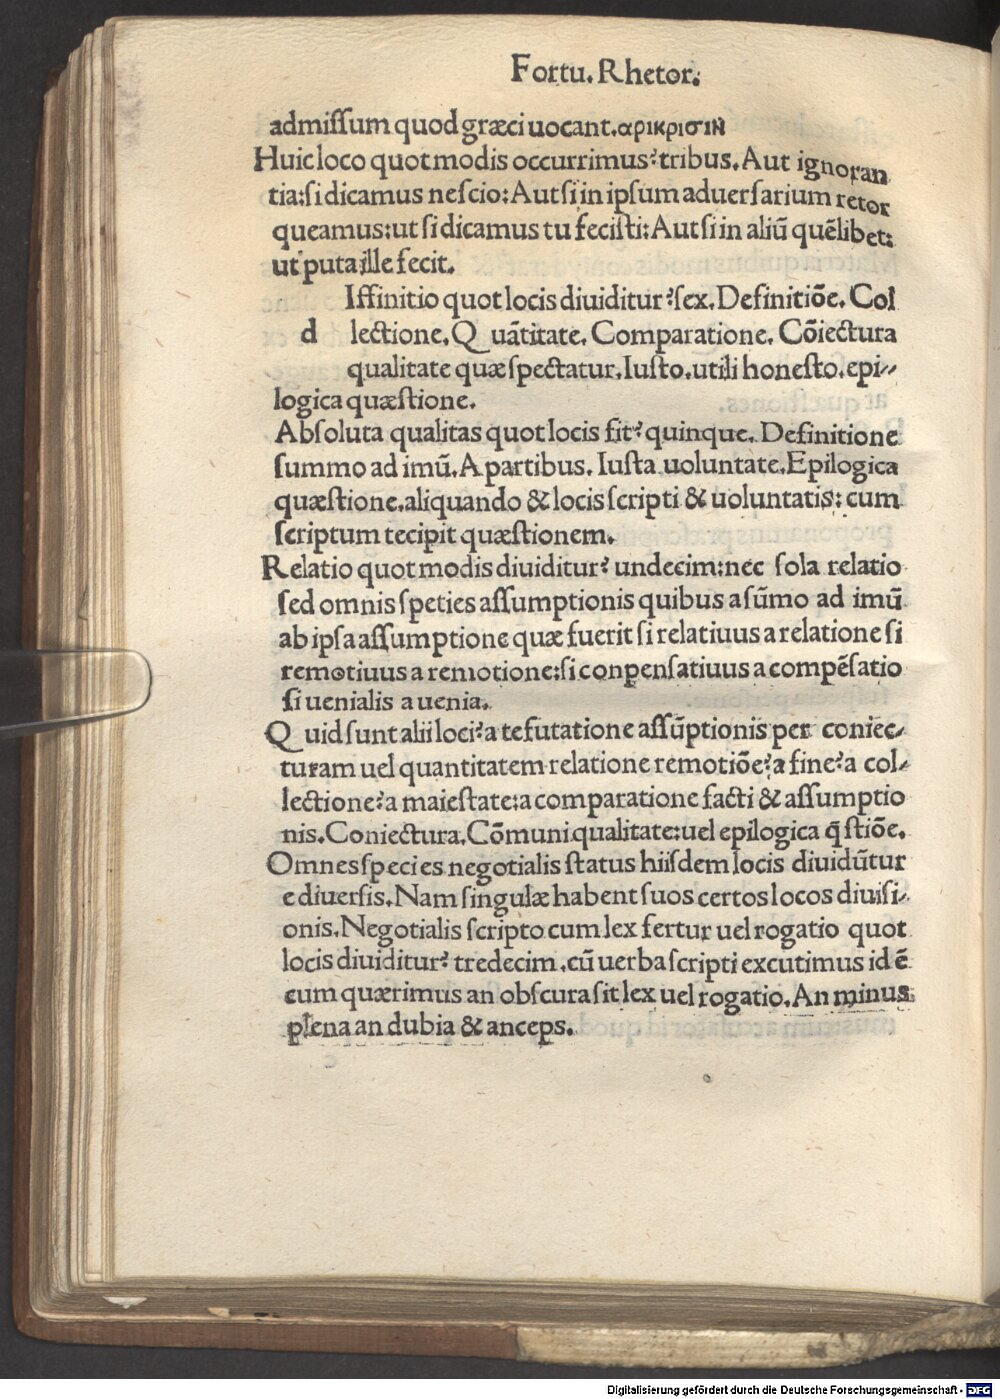 Fortu. Rhetor.
admiſſum quod græci uocant. αρικρισιν
Huic loco quot modis occurrimus? tribus. Aut ignoran
tia: ſi dicamus neſcio: Aut ſi in ipſum aduerſarium retor
queamus: ut ſi dicamus tu feciſti: Aut ſi in aliū quēlibet:
ut puta ille fecit.
Iffinitio quot locis diuiditur? ſex. Definitiōe. Col
d lectione. Quātitate. Comparatione. Cōiectura
qualitate quæ ſpectatur. Iuſto. utili honeſto. epi-
logica quæſtione.
Abſoluta qualitas quot locis fit? quinque. Definitione
ſummo ad imū. A partibus. Iuſta uoluntate. Epilogica
quæſtione. aliquando & locis ſcripti & uoluntatis: cum
ſcriptum tecipit quæſtionem.
Relatio quot modis diuiditur? undecim: nec ſola relatio
ſed omnis ſpeties aſſumptionis quibus a ſūmo ad imū
ab ipſa aſſumptione quæ fuerit ſi relatiuus a relatione ſi
remotiuus a remotione: ſi conpenſatiuus a compēſatio
ſi uenialis a uenia.
Quid ſunt alii loci? a tefutatione aſſūptionis per coniec-
turam uel quantitatem relatione remotiōe? a fine? a col-
lectione? a maieſtate: a comparatione facti & aſſumptio
nis. Coniectura. Cōmuni qualitate: uel epilogica q̄ſtiōe.
Omnes species negotialis ſtatus hiiſdem locis diuidūtur
e diuerſis. Nam ſingulæ habent ſuos certos locos diuiſi-
onis. Negotialis ſcripto cum lex fertur uel rogatio quot
locis diuiditur? tredecim. cū uerba ſcripti excutimus id ē
cum quærimus an obſcura ſit lex uel rogatio. An minus
plena an dubia & anceps.
Digitalisierung gefördert durch die Deutsche Forschungsgemeinschaft - DFG